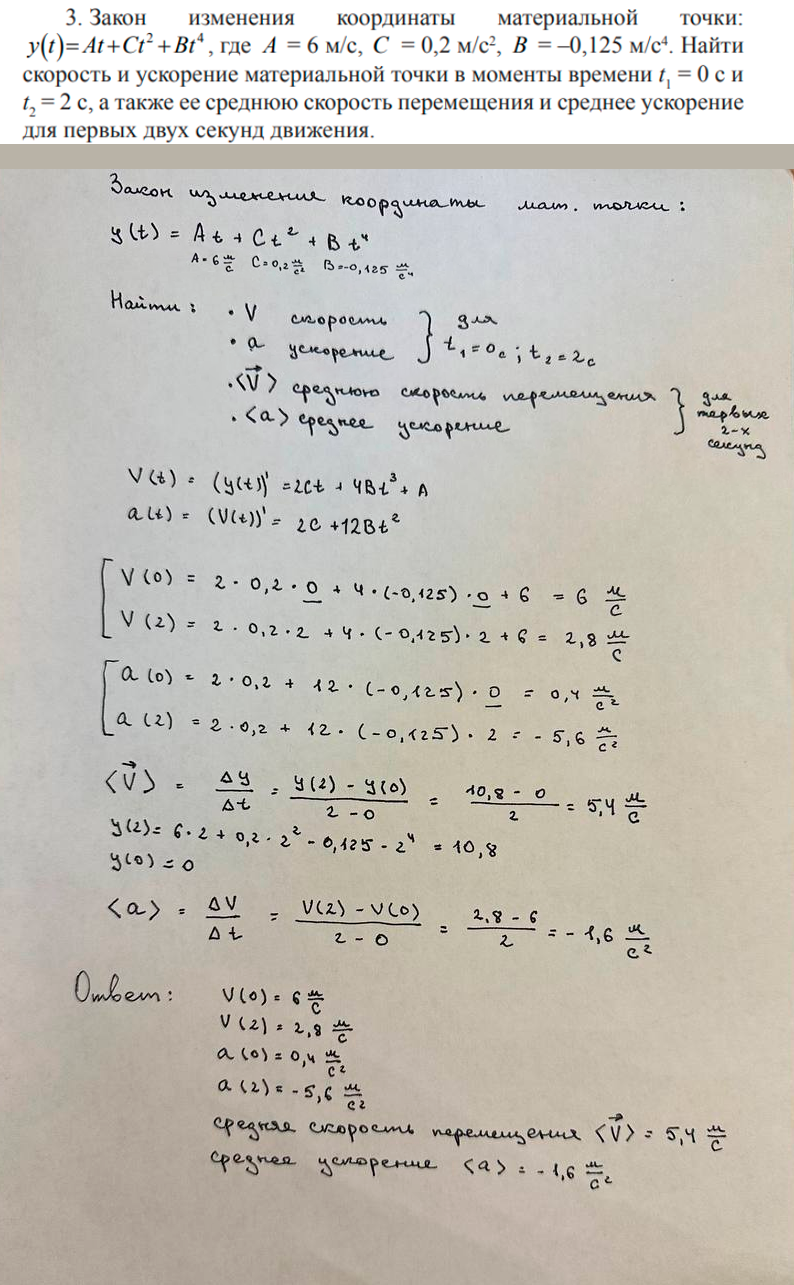 3. Закон изменения координаты материальной точки:
y(t)=At+Ct²+Bt⁴, где A = 6 м/с, C = 0,2 м/с², B = –0,125 м/с⁴. Найти
скорость и ускорение материальной точки в моменты времени t₁ = 0 с и
t₂ = 2 с, а также ее среднюю скорость перемещения и среднее ускорение
для первых двух секунд движения.
Закон изменения координаты мат. точки:
y(t) = At + Ct² + Bt⁴
A=6 м/с C=0,2 м/с² B=-0,125 м/с⁴
Найти: • V скорость } для
• a ускорение } t₁=0с ; t₂=2с
• <V⃗> среднюю скорость перемещения } для
• <a> среднее ускорение } первых
2-х
секунд
V(t) = (y(t))' = 2Ct + 4Bt³ + A
a(t) = (V(t))' = 2C + 12Bt²
V(0) = 2 · 0,2 · 0 + 4 · (-0,125) · 0 + 6 = 6 м/с
V(2) = 2 · 0,2 · 2 + 4 · (-0,125) · 2 + 6 = 2,8 м/с
a(0) = 2 · 0,2 + 12 · (-0,125) · 0 = 0,4 м/с²
a(2) = 2 · 0,2 + 12 · (-0,125) · 2 = - 5,6 м/с²
<V⃗> = Δy/Δt = (y(2) - y(0))/(2 - 0) = (10,8 - 0)/2 = 5,4 м/с
y(2) = 6 · 2 + 0,2 · 2² - 0,125 - 2⁴ = 10,8
y(0) = 0
<a> = ΔV/Δt = (V(2) - V(0))/(2 - 0) = (2,8 - 6)/2 = - 1,6 м/с²
Ответ: V(0) = 6 м/с
V(2) = 2,8 м/с
a(0) = 0,4 м/с²
a(2) = - 5,6 м/с²
средняя скорость перемещения <V⃗> = 5,4 м/с
среднее ускорение <a> = - 1,6 м/с²